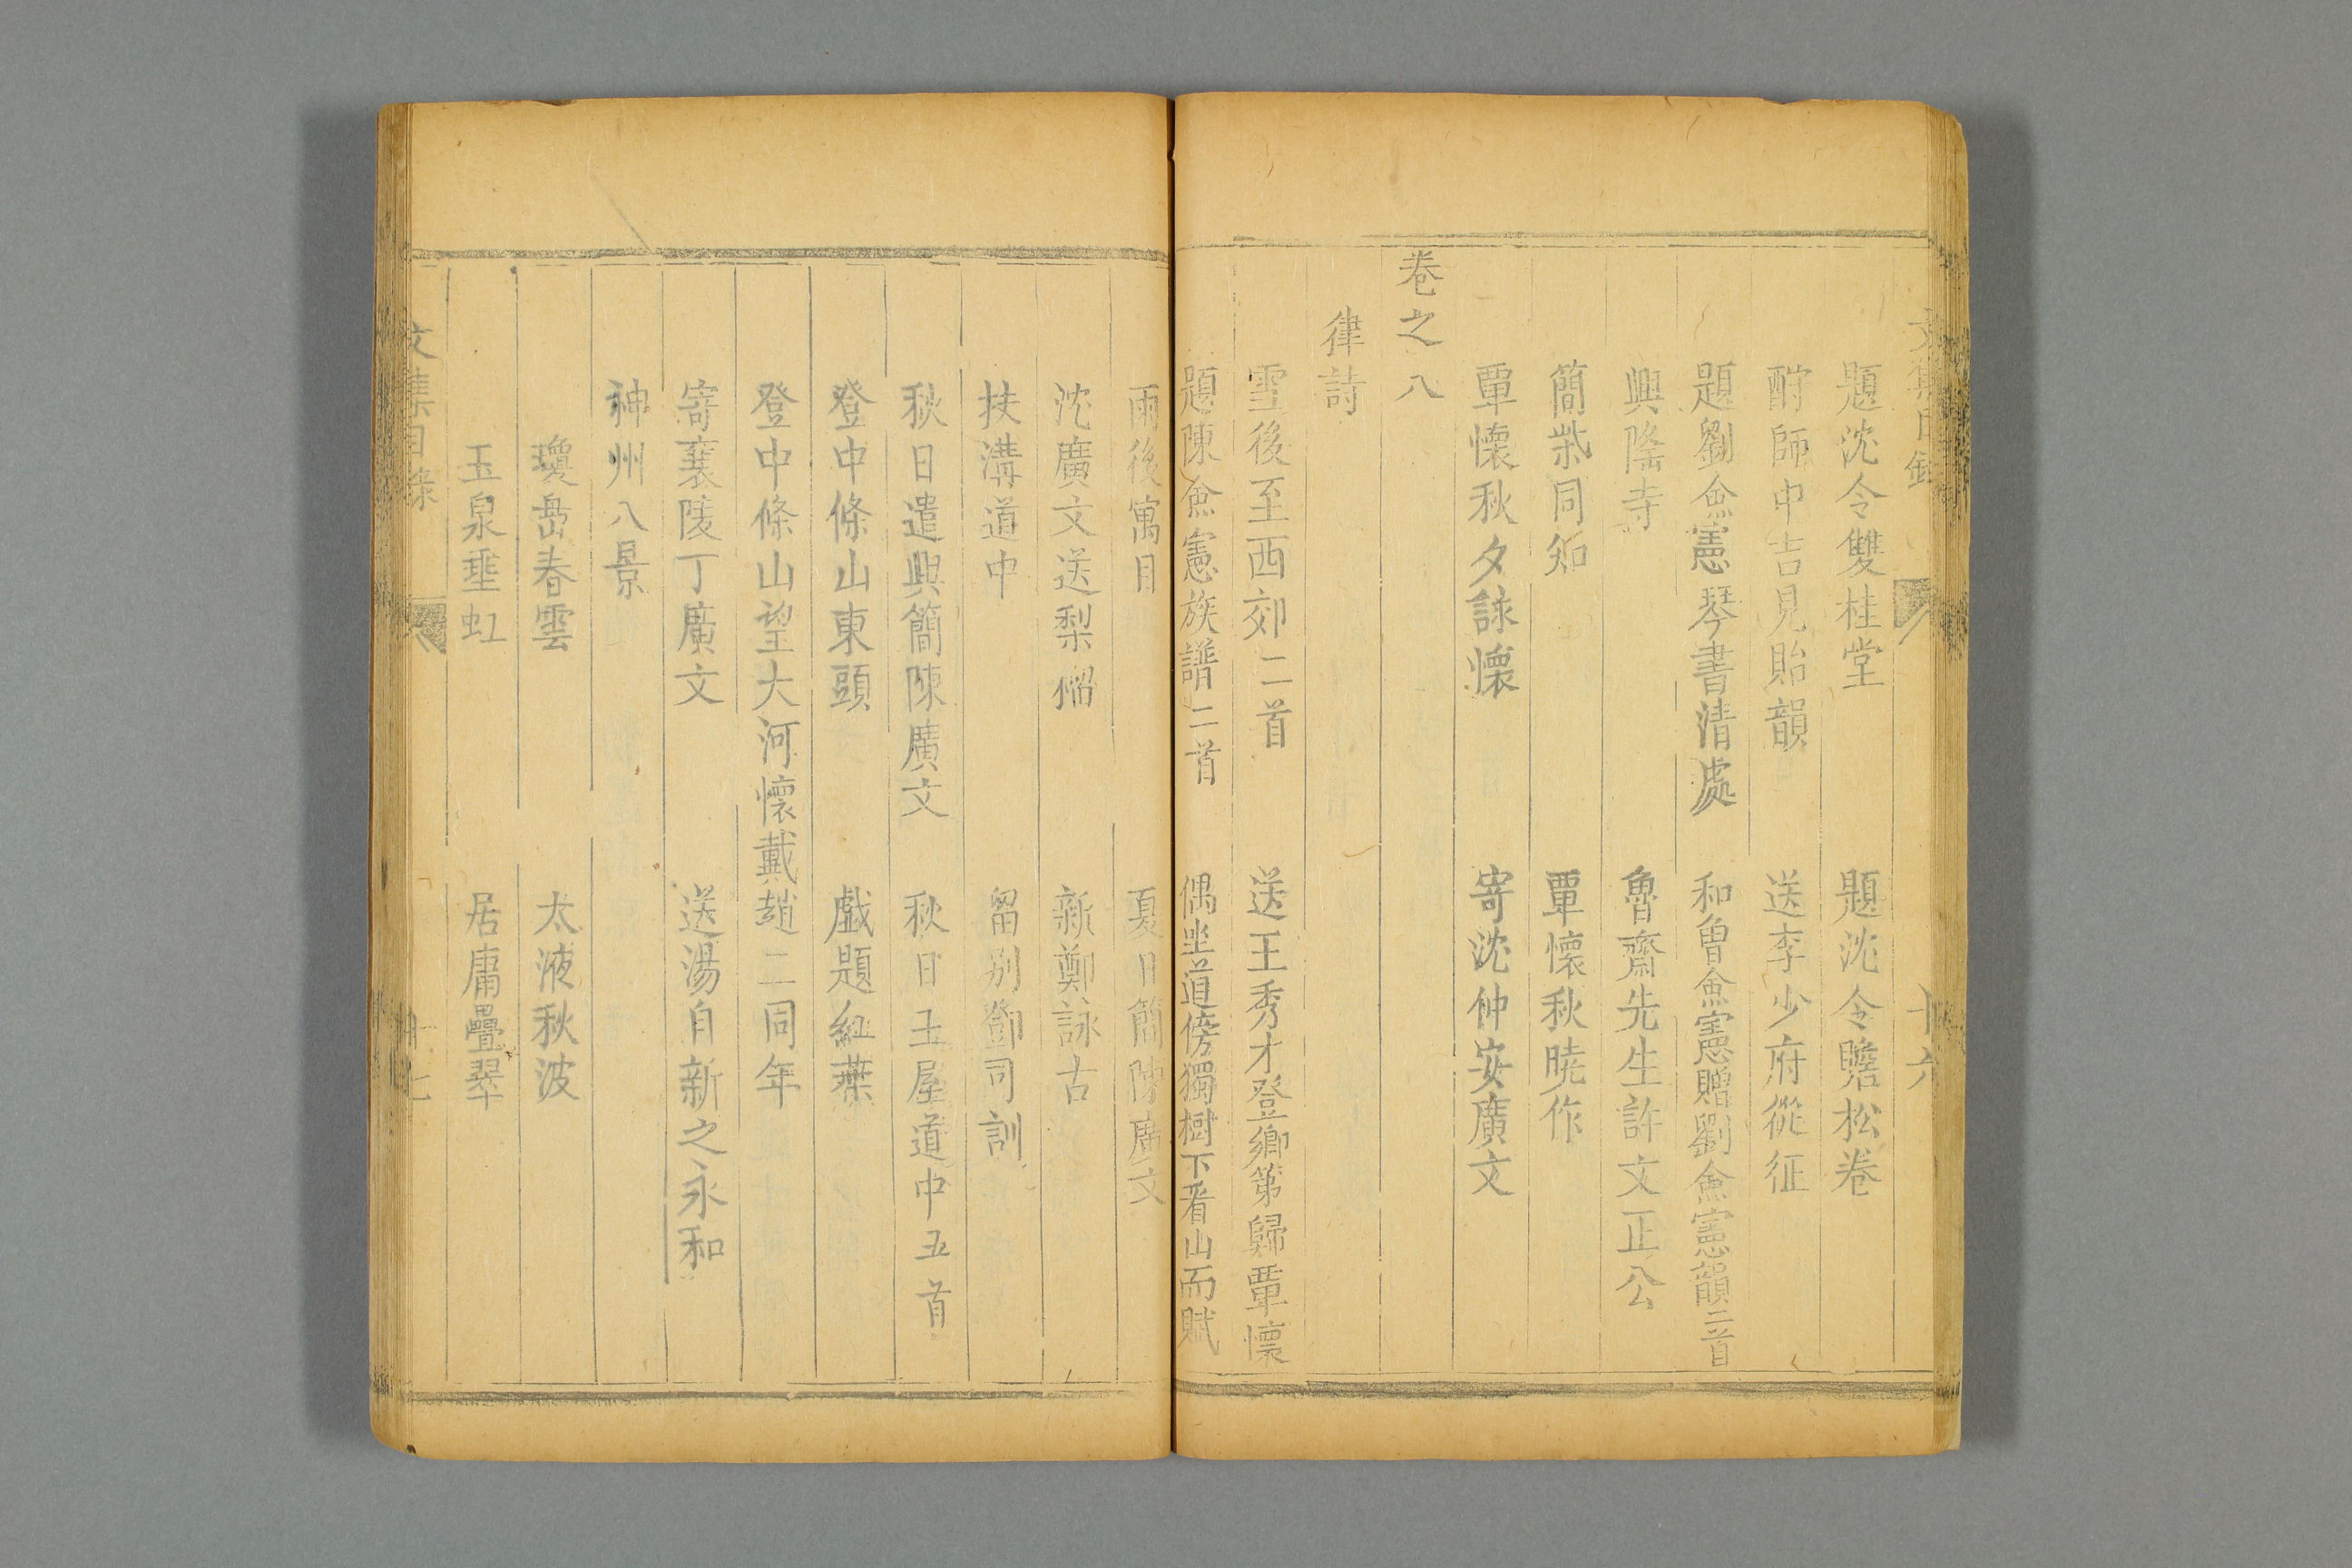 題沈令雙桂堂　題沈令瞻松卷
酧師中吉見貽韻　送李少府從征
題劉僉憲琴書清處　和魯僉憲贈劉僉憲韻二首
興隆寺　魯齋先生許文正公
簡柴同知　覃懷秋曉作
覃懷秋夕詠懷　寄沈仲安廣文
卷之八
律詩
雪後至西郊二首　送王秀才登鄉第歸覃懷
題陳僉憲族譜二首　偶坐道傍獨樹下看山而賦
雨後寓目　夏日簡陳廣文
沈廣文送梨榴　新鄭詠古
扶溝道中　留別鄧司訓
秋日遣興簡陳廣文　秋日王屋道中五首
登中條山東頭　戲題紅葉
登中條山望大河懷戴趙二同年
寄襄陵丁廣文　送湯自新之永和
神州八景
瓊島春雲　太液秋波
玉泉垂虹　居庸疊翠
文集目錄